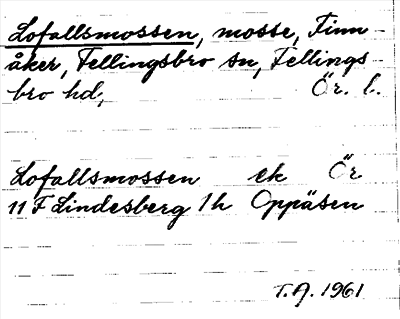 Lofallsmossen, mosse, Finn-
åker, Fellingsbro sn, Fellings-
bro hd, Ör. l.
Lofallsmossen ek Ör
11 F Lindesberg 1h Oppåsen
T.A. 1961